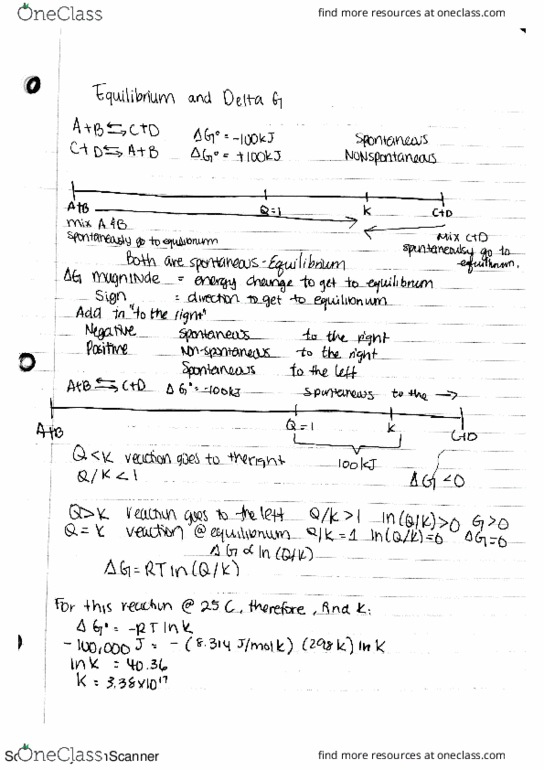 OneClass
find more resources at oneclass.com
Equilibrium and Delta G
A+B ⇆ C+D ΔG° = -100kJ Spontaneous
C+D ⇆ A+B ΔG° = +100kJ Nonspontaneous
A+B Q=1 K C+D
mix A & B mix C+D
spontaneously go to equilibrium spontaneously go to equilibrium.
Both are spontaneous - Equilibrium
ΔG magninde = energy change to get to equilibrium
Sign = direction to get to equilibrium
Add in "to the right"
Negative Spontaneous to the right
Positive Non-spontaneous to the right
Spontaneous to the left
A+B ⇆ C+D ΔG° = -100kJ Spontaneous to the →
A+B Q=1 K C+D
100kJ
ΔG <0
Q<K reaction goes to the right
Q/K < 1
Q>K reaction goes to the left Q/K >1 ln(Q/K)>0 G>0
Q = K reaction @ equilibrium Q/K = 1 ln(Q/K)=0 ΔG=0
ΔG ∝ ln(Q/K)
ΔG = RT ln(Q/K)
For this reaction @ 25 C, therefore, find K:
ΔG° = -RT ln K
-100,000 J = -(8.314 J/mol K) (298 K) ln K
ln K = 40.36
K = 3.38x10¹⁷
OneClass
Scanner
find more resources at oneclass.com